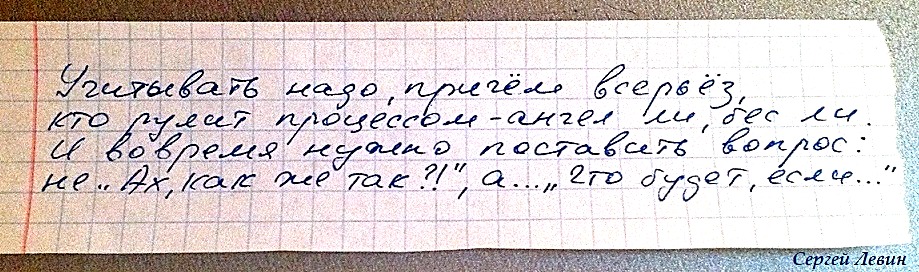 Учитывать надо, причём всерьёз,
кто рулит процессом - ангел ли, бес ли.
И вовремя нужно поставить вопрос:
не „Ах, как же так?!", а... „Что будет, если..."
Сергей Левин